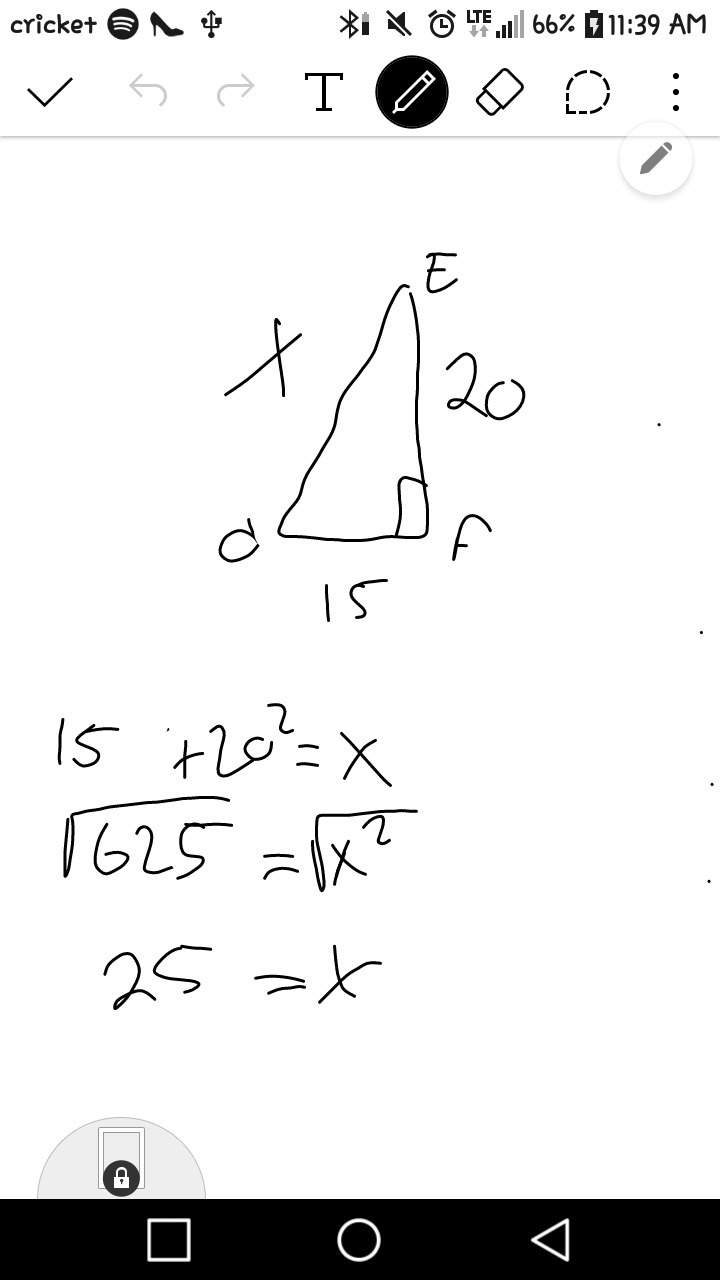 cricket LTE 66% 11:39 AM
T
E
X
20
d
F
15
15 +20²= x
√625 = √x²
25 = x